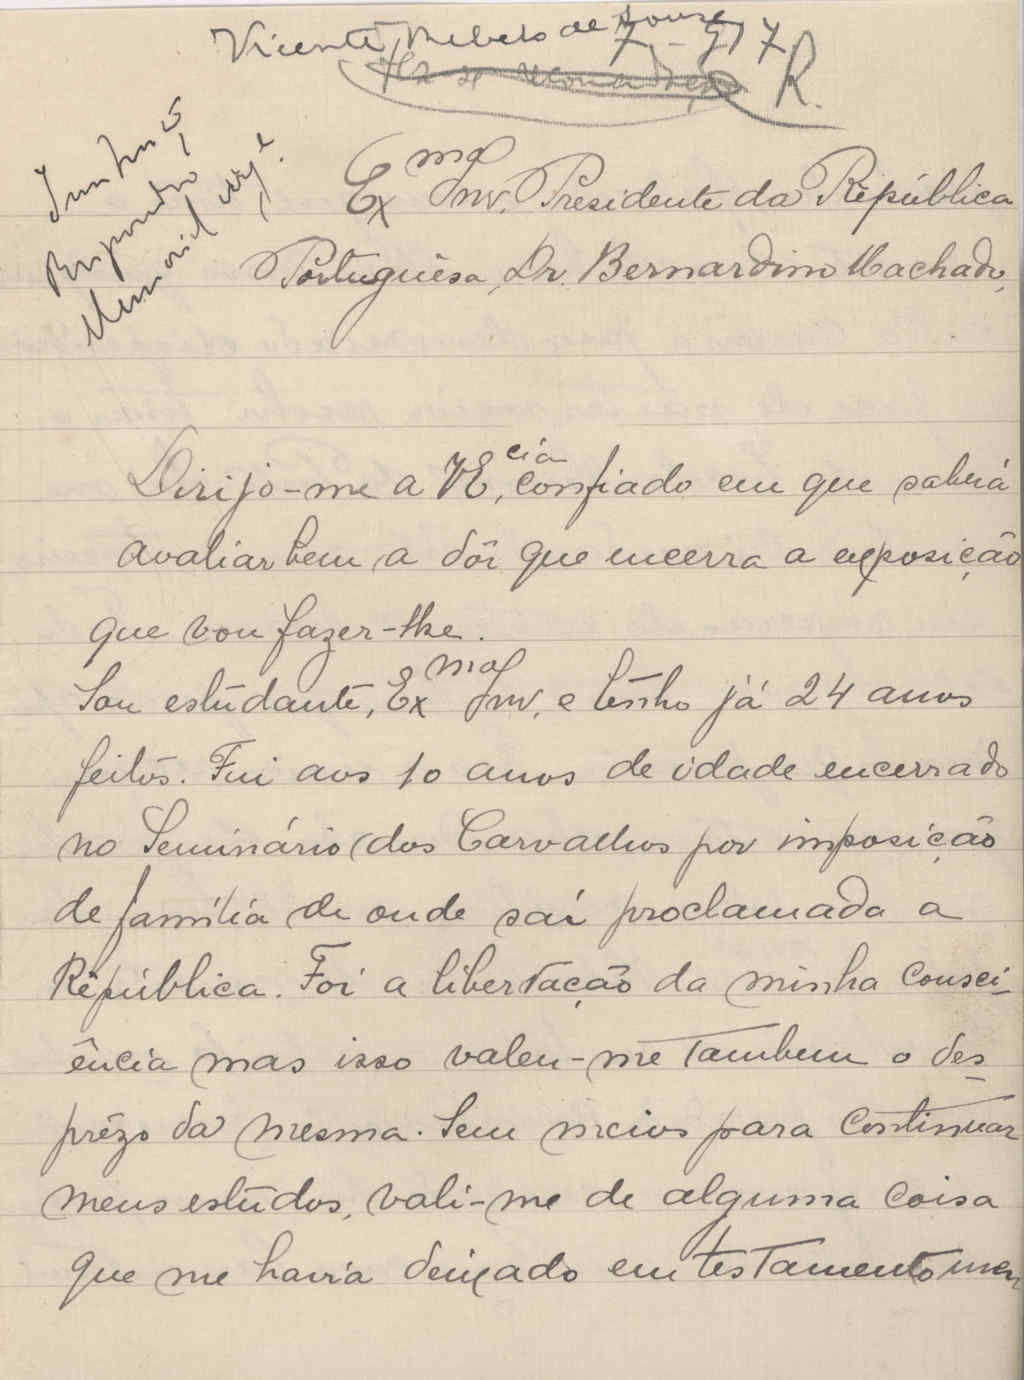 Vicente Rebelo de Souza
7-9-917
R.
Exmo Snr. Presidente da República
Portuguêsa, Dr. Bernardino Machado,
Dirijo-me a VEcia, confiado em que saberá
avaliar bem a dôr que encerra a exposição
que vou fazer-lhe.
Sou estudante, Exmo Snr. e tenho já 24 anos
feitos. Fui aos 10 anos de idade encerrado
no Seminário dos Carvalhos por imposição
de família de onde saí proclamada a
República. Foi a libertação da minha consci-
ência mas isso valeu-me tambem o des-
prêzo da mesma. Sem meios para continuar
meus estudos, vali-me de alguma coisa
que me havia deixado em testamento meu